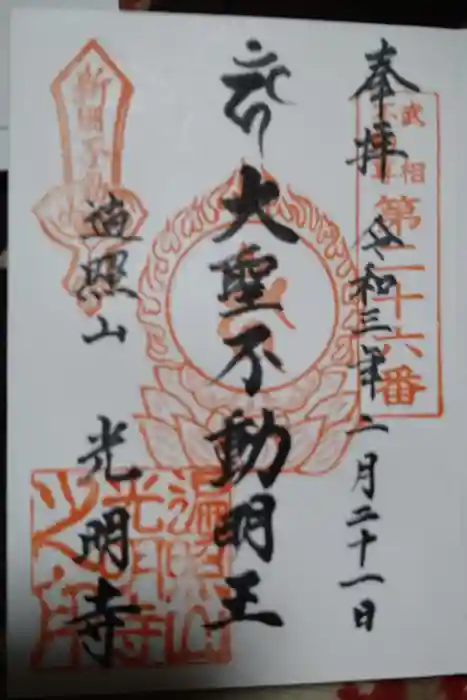 奉拝 令和三年二月二十一日
武相
不動尊
第二十六番
大聖不動明王
遍照山 光明寺
遍照山
光明寺
之印